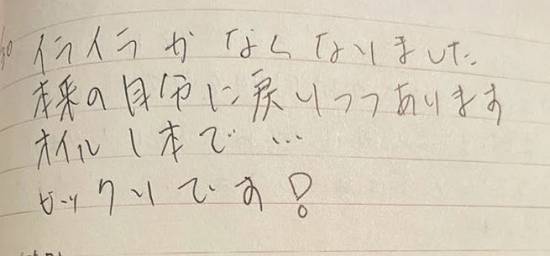 イライラがなくなりました
本来の自分に戻りつつあります
オイル1本で…
ビックリです!